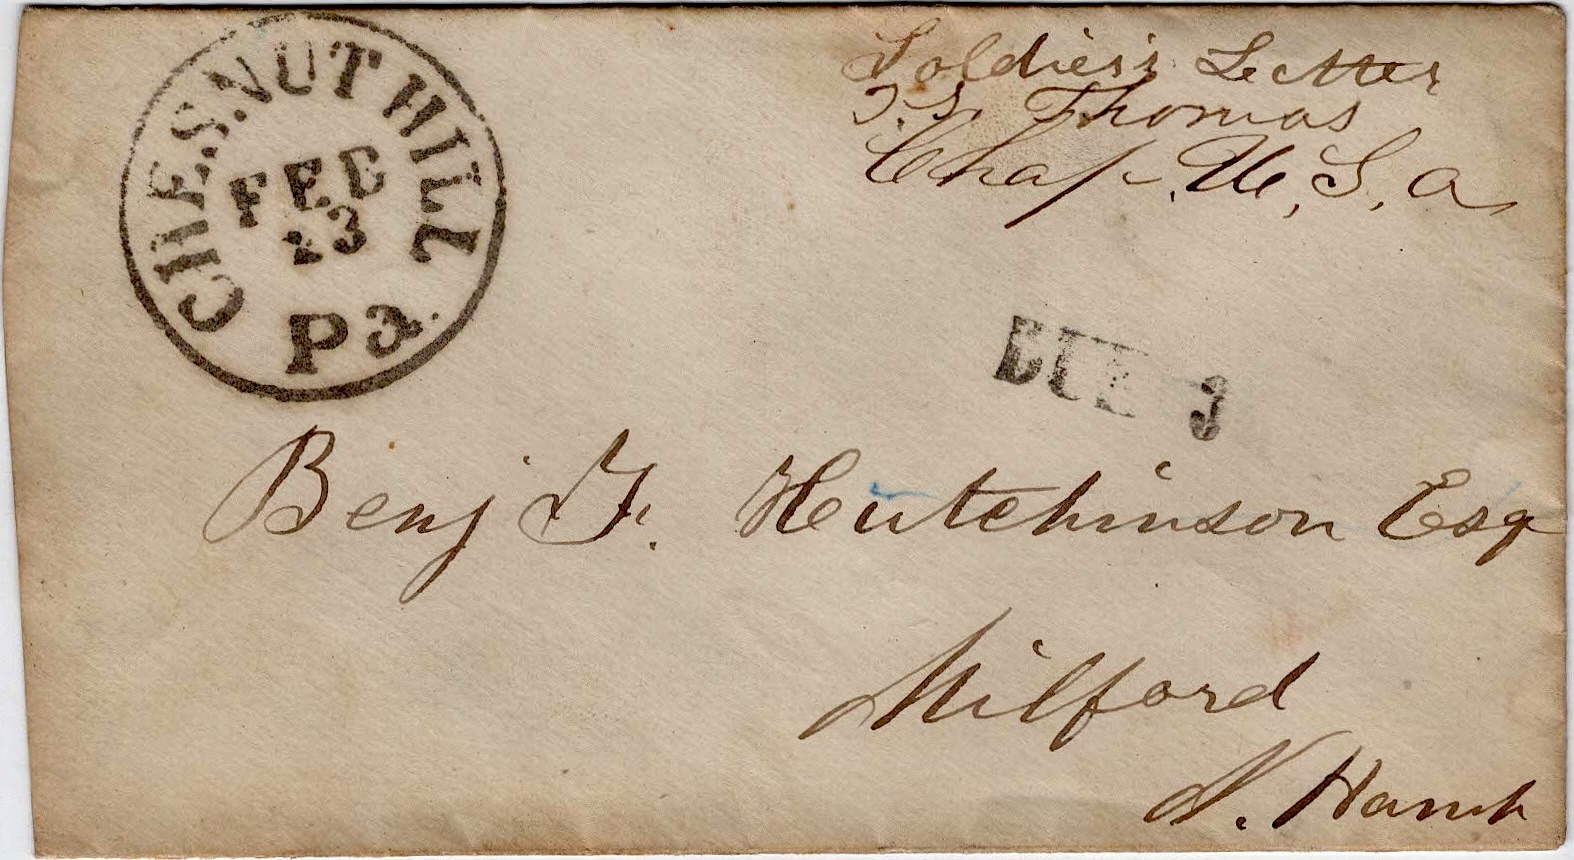 CHESNUT HILL
FEB
23
Pa.
Soldier's Letter
J.S. Thomas
Chap. U.S.a
DUE 3
Benj F. Hutchinson Esq
Milford
N. Hamp